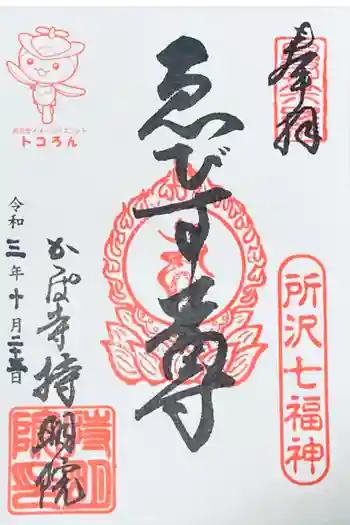 奉拝
所沢七福神
ゑびす尊
所沢市イメージマスコット
トコろん
令和三年十月二十三日
かっぱ寺持明院